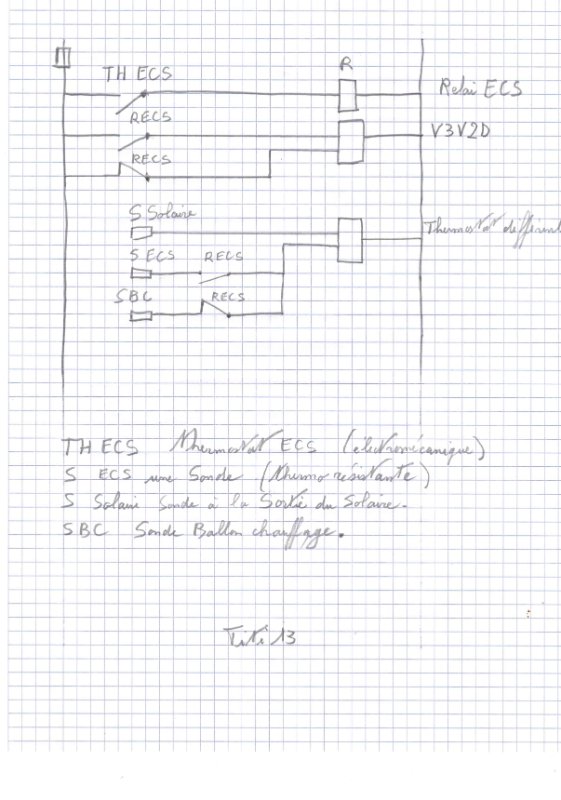 R
TH ECS
Relai ECS
RECS
V3V2D
RECS
S Solaire
Thermostat différent
S ECS RECS
SBC RECS
TH ECS thermostat ECS (electromécanique)
S ECS une Sonde (thermo résistante)
S Solaire Sonde à la Sortie du Solaire.
SBC Sonde Ballon chauffage.
Titi 13